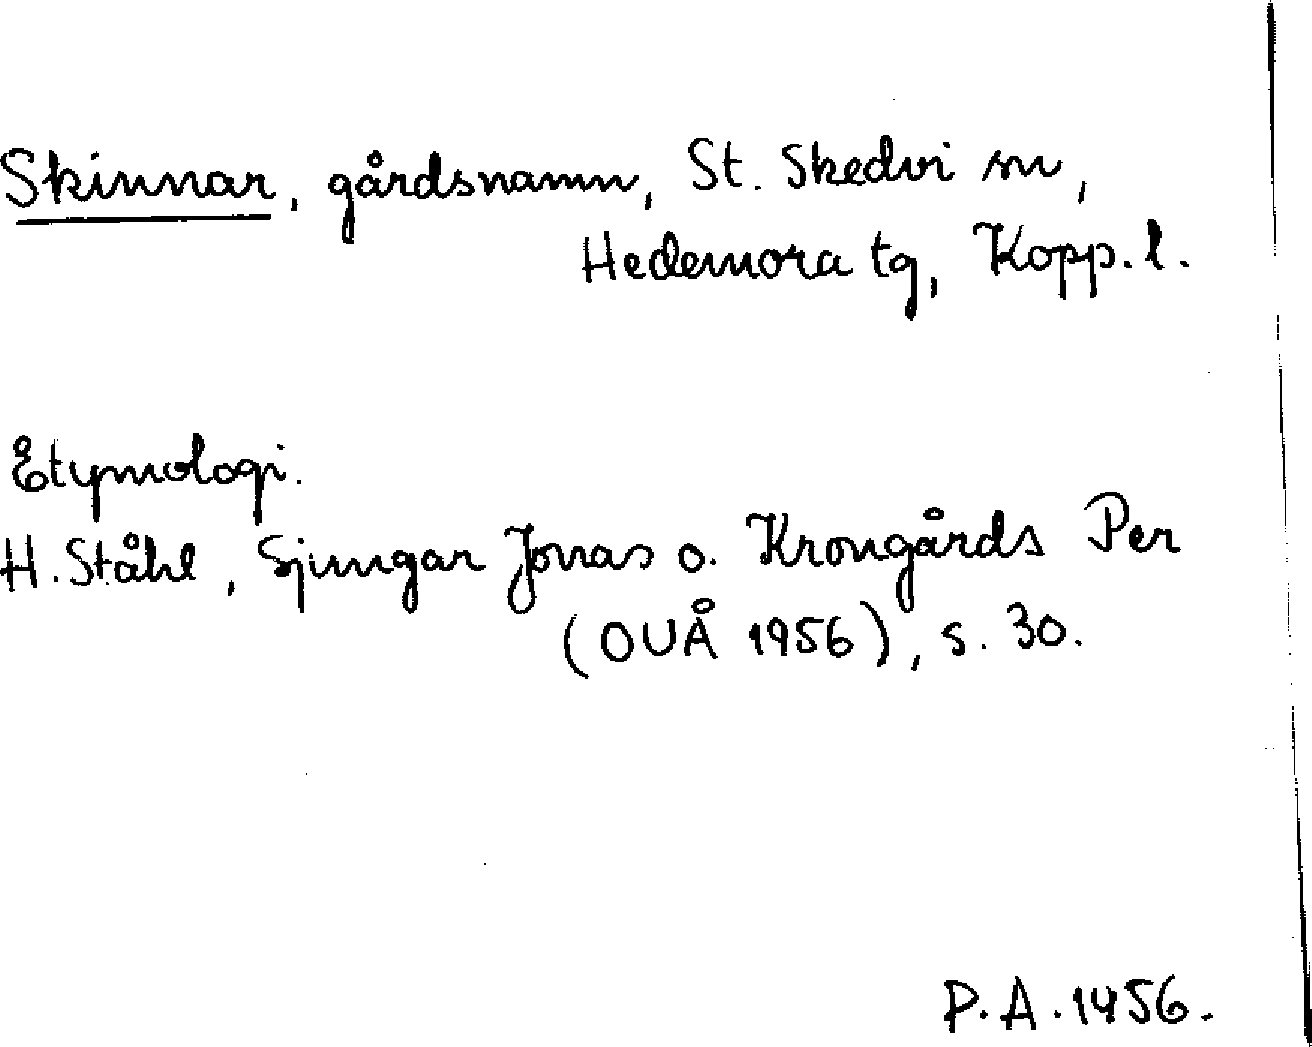 Skinnar, gårdsnamn, St. Skedvi sn,
Hedemora tg, Kopp. l.
Etymologi.
H. Ståhl, Sjungar Jonas o. Krongårds Per
(OUÅ 1956), s. 30.
P.A. 1456.